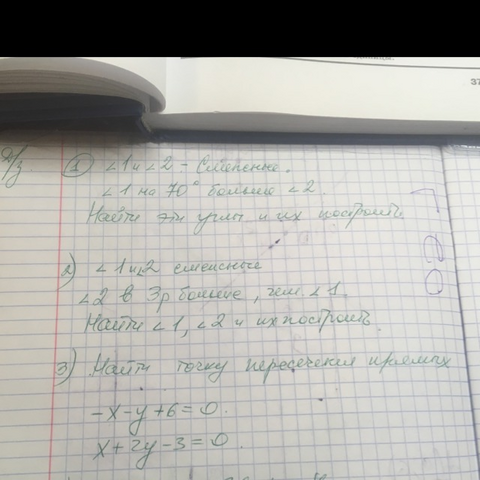 37
Д/з.
1) ∠1 и ∠2 - Смежные.
∠1 на 70° больше ∠2.
Найти эти углы и их построить.
2) ∠1 и ∠2 смежные
∠2 в 3р больше, чем ∠1.
Найти ∠1, ∠2 и их построить.
3) Найти точку пересечения прямых
-x-y+6=0.
x+2y-3=0.